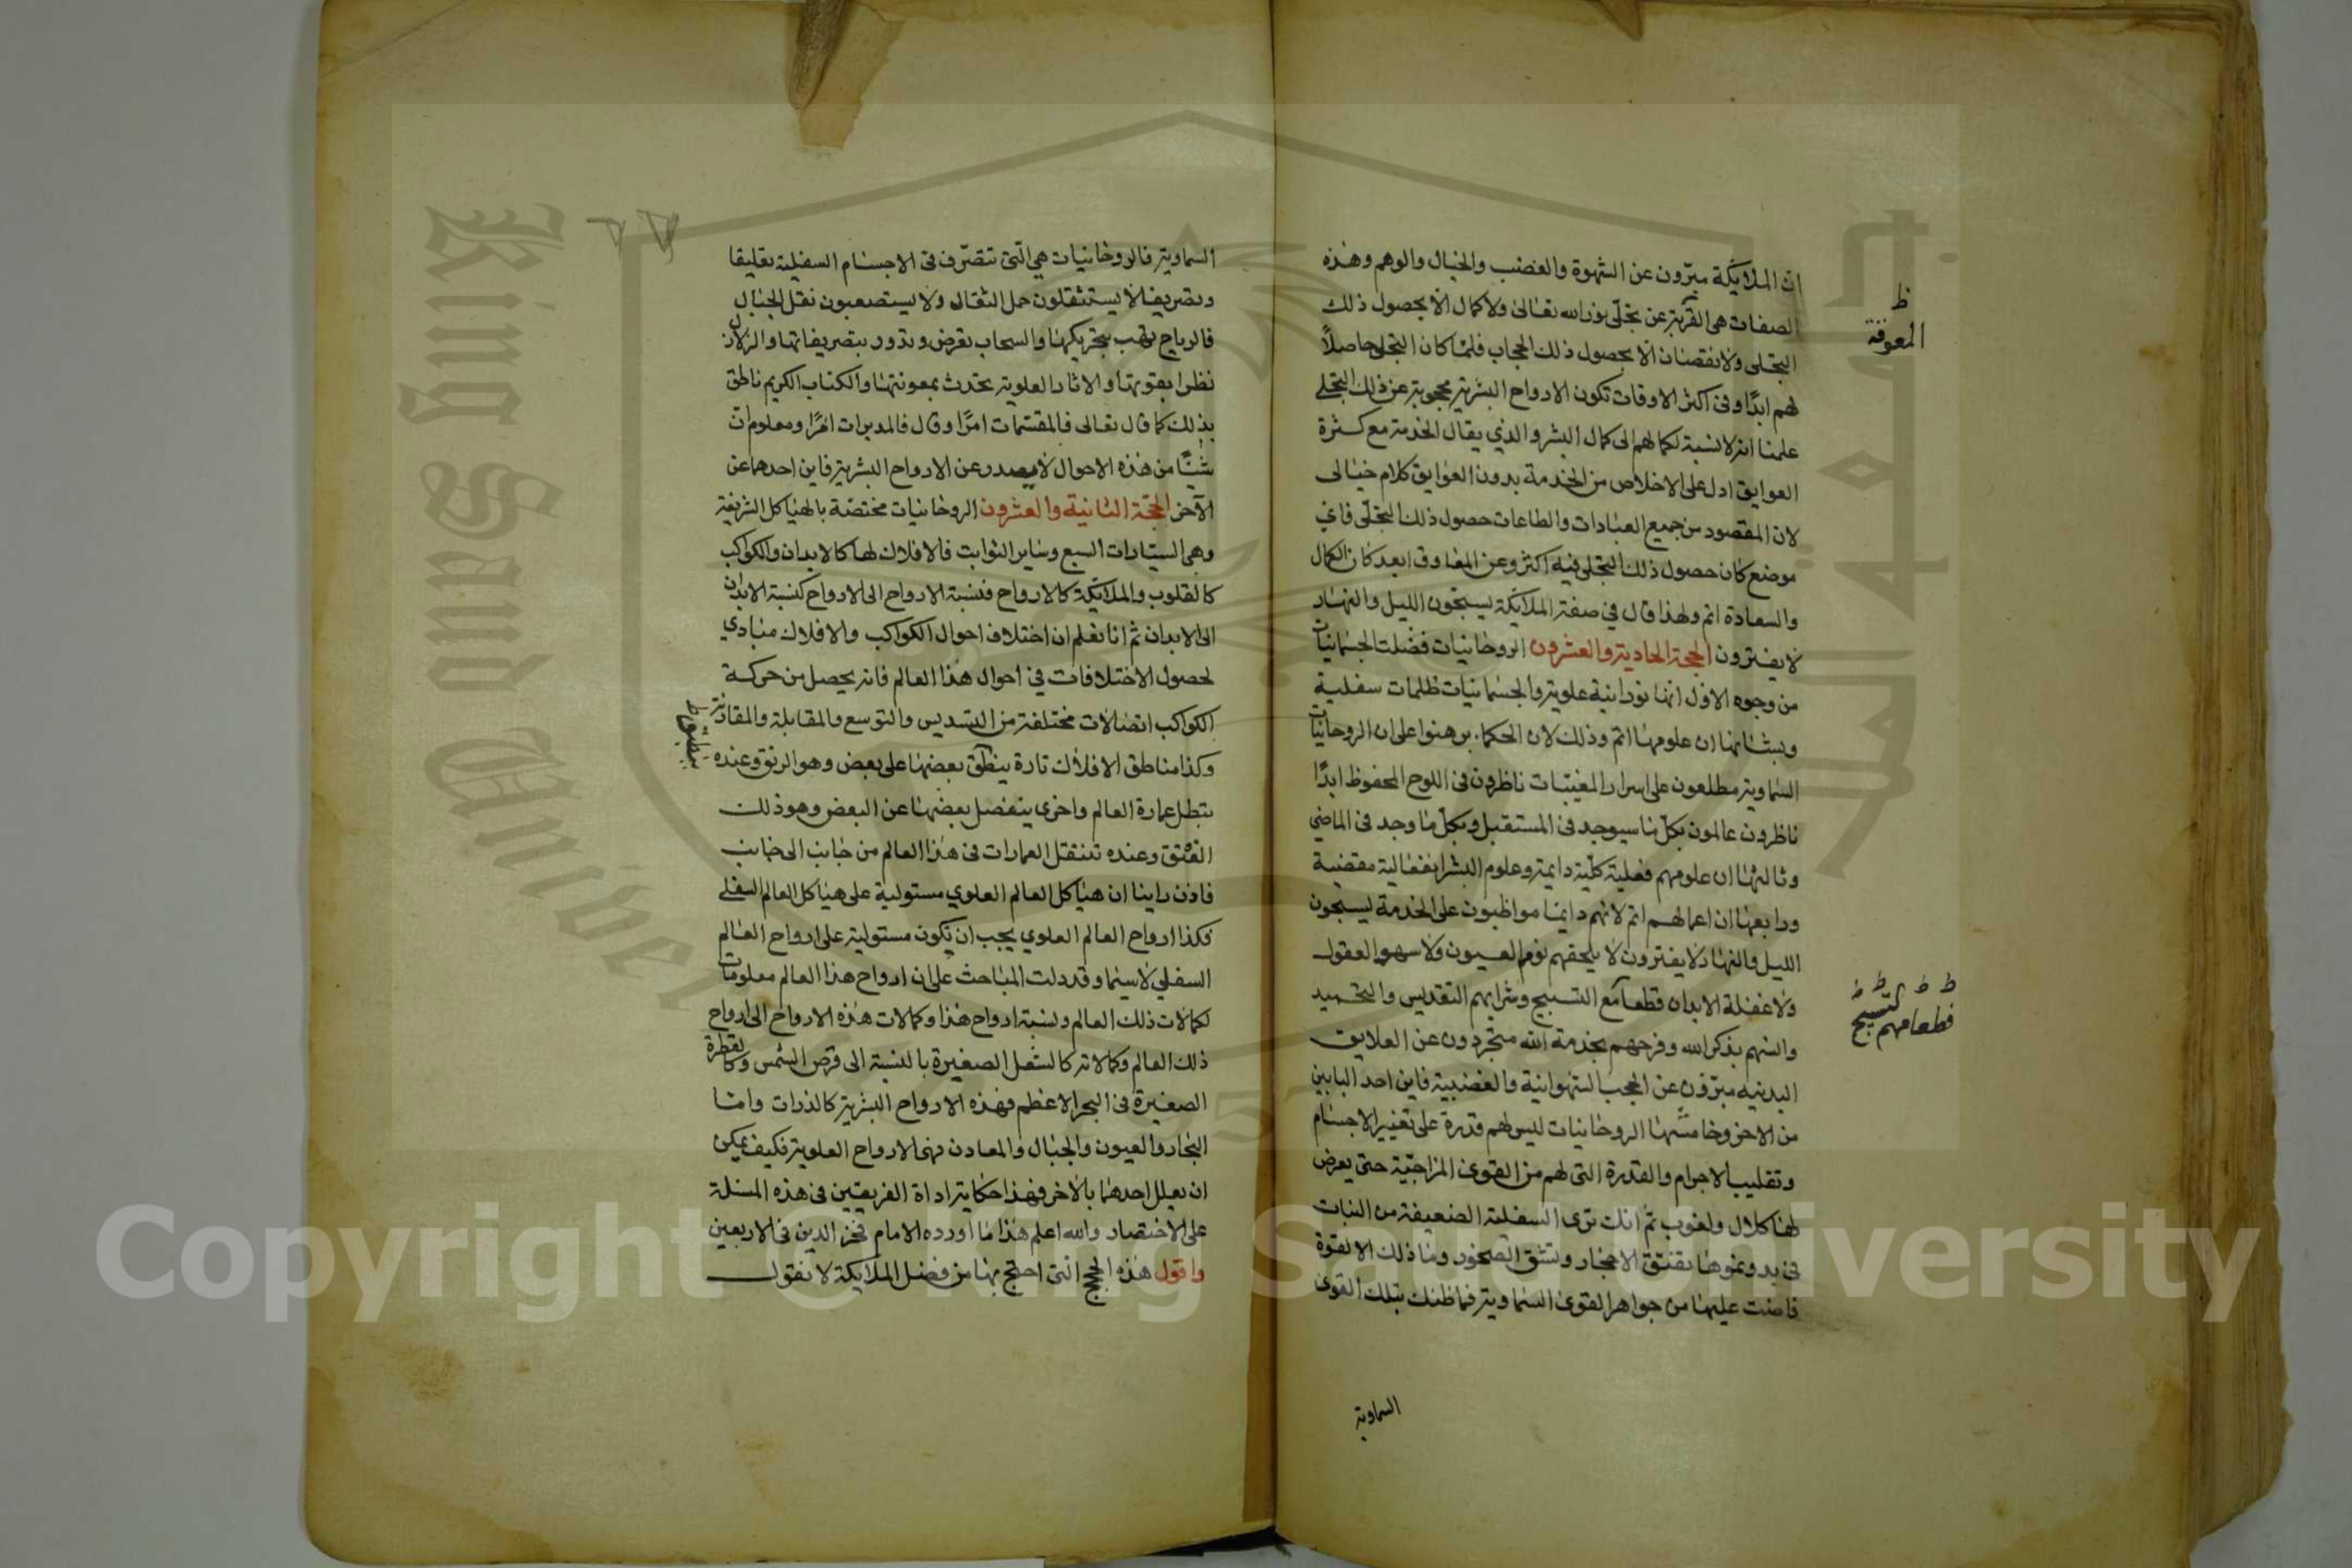 ان الملايكة مبرّون عن الشهوة والغضب والخيال والوهم وهذه
الصفات هى القربة عن تجلّى نور الله تعالى ولا كمال الا بحصول ذلك
التجلى ولا نقصان الا بحصول ذلك الحجاب فلمّا كان التجلى حاصلاً
لهم ابدًا وفى اكثر الاوقات تكون الارواح البشرية محجوبة عن ذلك التجلى
علمنا انه لا نسبة لكمالهم الى كمال البشر والذي يقال الخدمة مع كثرة
العوايق ادل على الاخلاص من الخدمة بدون العوايق كلام خيالى
لان المقصود من جميع العبادات والطاعات حصول ذلك التجلّى فاي
موضع كان حصول ذلك التجلى فيه اكثر وعن المعاوق ابعد كان الكمال
والسعادة اتم ولهذا قال في صفة الملائكة يسبّحون الليل والنهار
لا يفترون الحجة الحادية والعشرون الروحانيات فضلت الجسمانيات
من وجوه الاول انها نورانية علوية والجسمانيات ظلمات سفلية
وبشانها ان علومها اتم وذلك لان الحكماء برهنوا على ان الروحانيات
السماوية مطلعون على اسرار المغيّبات ناظرون فى اللوح المحفوظ ابدًا
ناظرون عالمون بكلّ ما سيوجد فى المستقبل وبكلّ ما وجد فى الماضى
وثالثها ان علومهم فعلية كلّية دايمة وعلوم البشر انفعالية مقضية
ورابعها ان اعمالهم اتم لانهم دايما مواظبون على الخدمة يسبحون
الليل والنهار لا يفترون لا يلحقهم نوم العيون ولا سهو العقول
ولا غفلة الابدان قطعا مع التسبيح وشرابهم التقديس والتحميد
وانسهم بذكر الله وفرحهم بخدمة الله متجردون عن العلايق
البدنيه مبرّؤن عن الحجب الشهوانية والغضبية فاين احد البابين
من الاخر وخامسها الروحانيات ليس لهم قدرة على تغيير الاجسام
وتقليب الاجرام والقدرة التى لهم من القوى المزاجيّة حتى يعرض
لها كلال ولغوب ثم انك ترى السفلة الضعيفة من النبات
فى بدو نموها تفتق الاحجار وتشق الصخور وما ذلك الا لقوة
فاضت عليها من جواهر القوى السماوية فما ظنك بتلك القوى
السماوية
ظ
المعوقة
ظ ظ ظ ظ
فطعامهم التسبيح
السماوية فالروحانيات هي الّتى تتصرّف فى الاجسام السفلية تقليقا
وتصريفا لا يستثقلون حمل الثقال ولا يستصعبون نقل الجبال
فالرياح تهب بتحريكها والسحاب تعرض وتدور بتصريفاتها والزلازل
نظرا بقوتها والاثار العلوية تحدث بمعونتها والكتاب الكريم ناطق
بذلك كما قال تعالى فالمقسّمات امرًا وقال فالمدبرات امرًا ومعلوم ان
شيئًا من هذه الاحوال لا يصدر عن الارواح البشرية فاين احدهما عن
الآخر الحجّة الثانية والعشرون الروحانيات مختصّة بالهياكل الشريفة
وهى السيّارات السبع وساير الثوابت فالافلاك لها كالابدان والكواكب
كالقلوب والملائكة كالارواح فنسبة الارواح الى الارواح كنسبة الابدان
الى الابدان ثم انا نعلم ان اختلاف احوال الكواكب والافلاك مبادي
لحصول الاختلافات في احوال هذا العالم فانه يحصل من حركة
الكواكب اتصالات مختلفة من التسديس والتوسع والمقابلة والمقارنة
وكذا مناطق الافلاك تارة ينطق بعضها على بعض وهو الرتق وعنده
يبطل عمارة العالم واخرى ينفصل بعضها عن البعض وهو ذلك
الفتق وعنده تنتقل العمارات فى هذا العالم من جانب الى جانب
فاذن راينا ان هياكل العالم العلوي مستولية على هياكل العالم السفلى
فكذا ارواح العالم العلوي يجب ان تكون مستولية على ارواح العالم
السفلي لا سيما وقد دلت المباحث على ان ارواح هذا العالم معلومات
لكمالات ذلك العالم ونسبة ارواح هذا وكمالات هذه الارواح الى ارواح
ذلك العالم وكمالاته كالشعل الصغيرة بالنسبة الى قرص الشمس وكالقطرة
الصغيرة فى البحر الاعظم فهذه الارواح البشرية كالذرات واما
البحار والعيون والجبال والمعادن فهى الارواح العلوية فكيف يمكن
ان يعلل احدهما بالاخر فهذا حكاية اداة الفريقين فى هذه المسئلة
على الاختصار والله اعلم هذا ما اورده الامام فخر الدين فى الاربعين
واقول هذه الحجج التى احتج بها من فضل الملايكة لا نقول
ينطبق ظ
King Saud University
Copyright © King Saud University